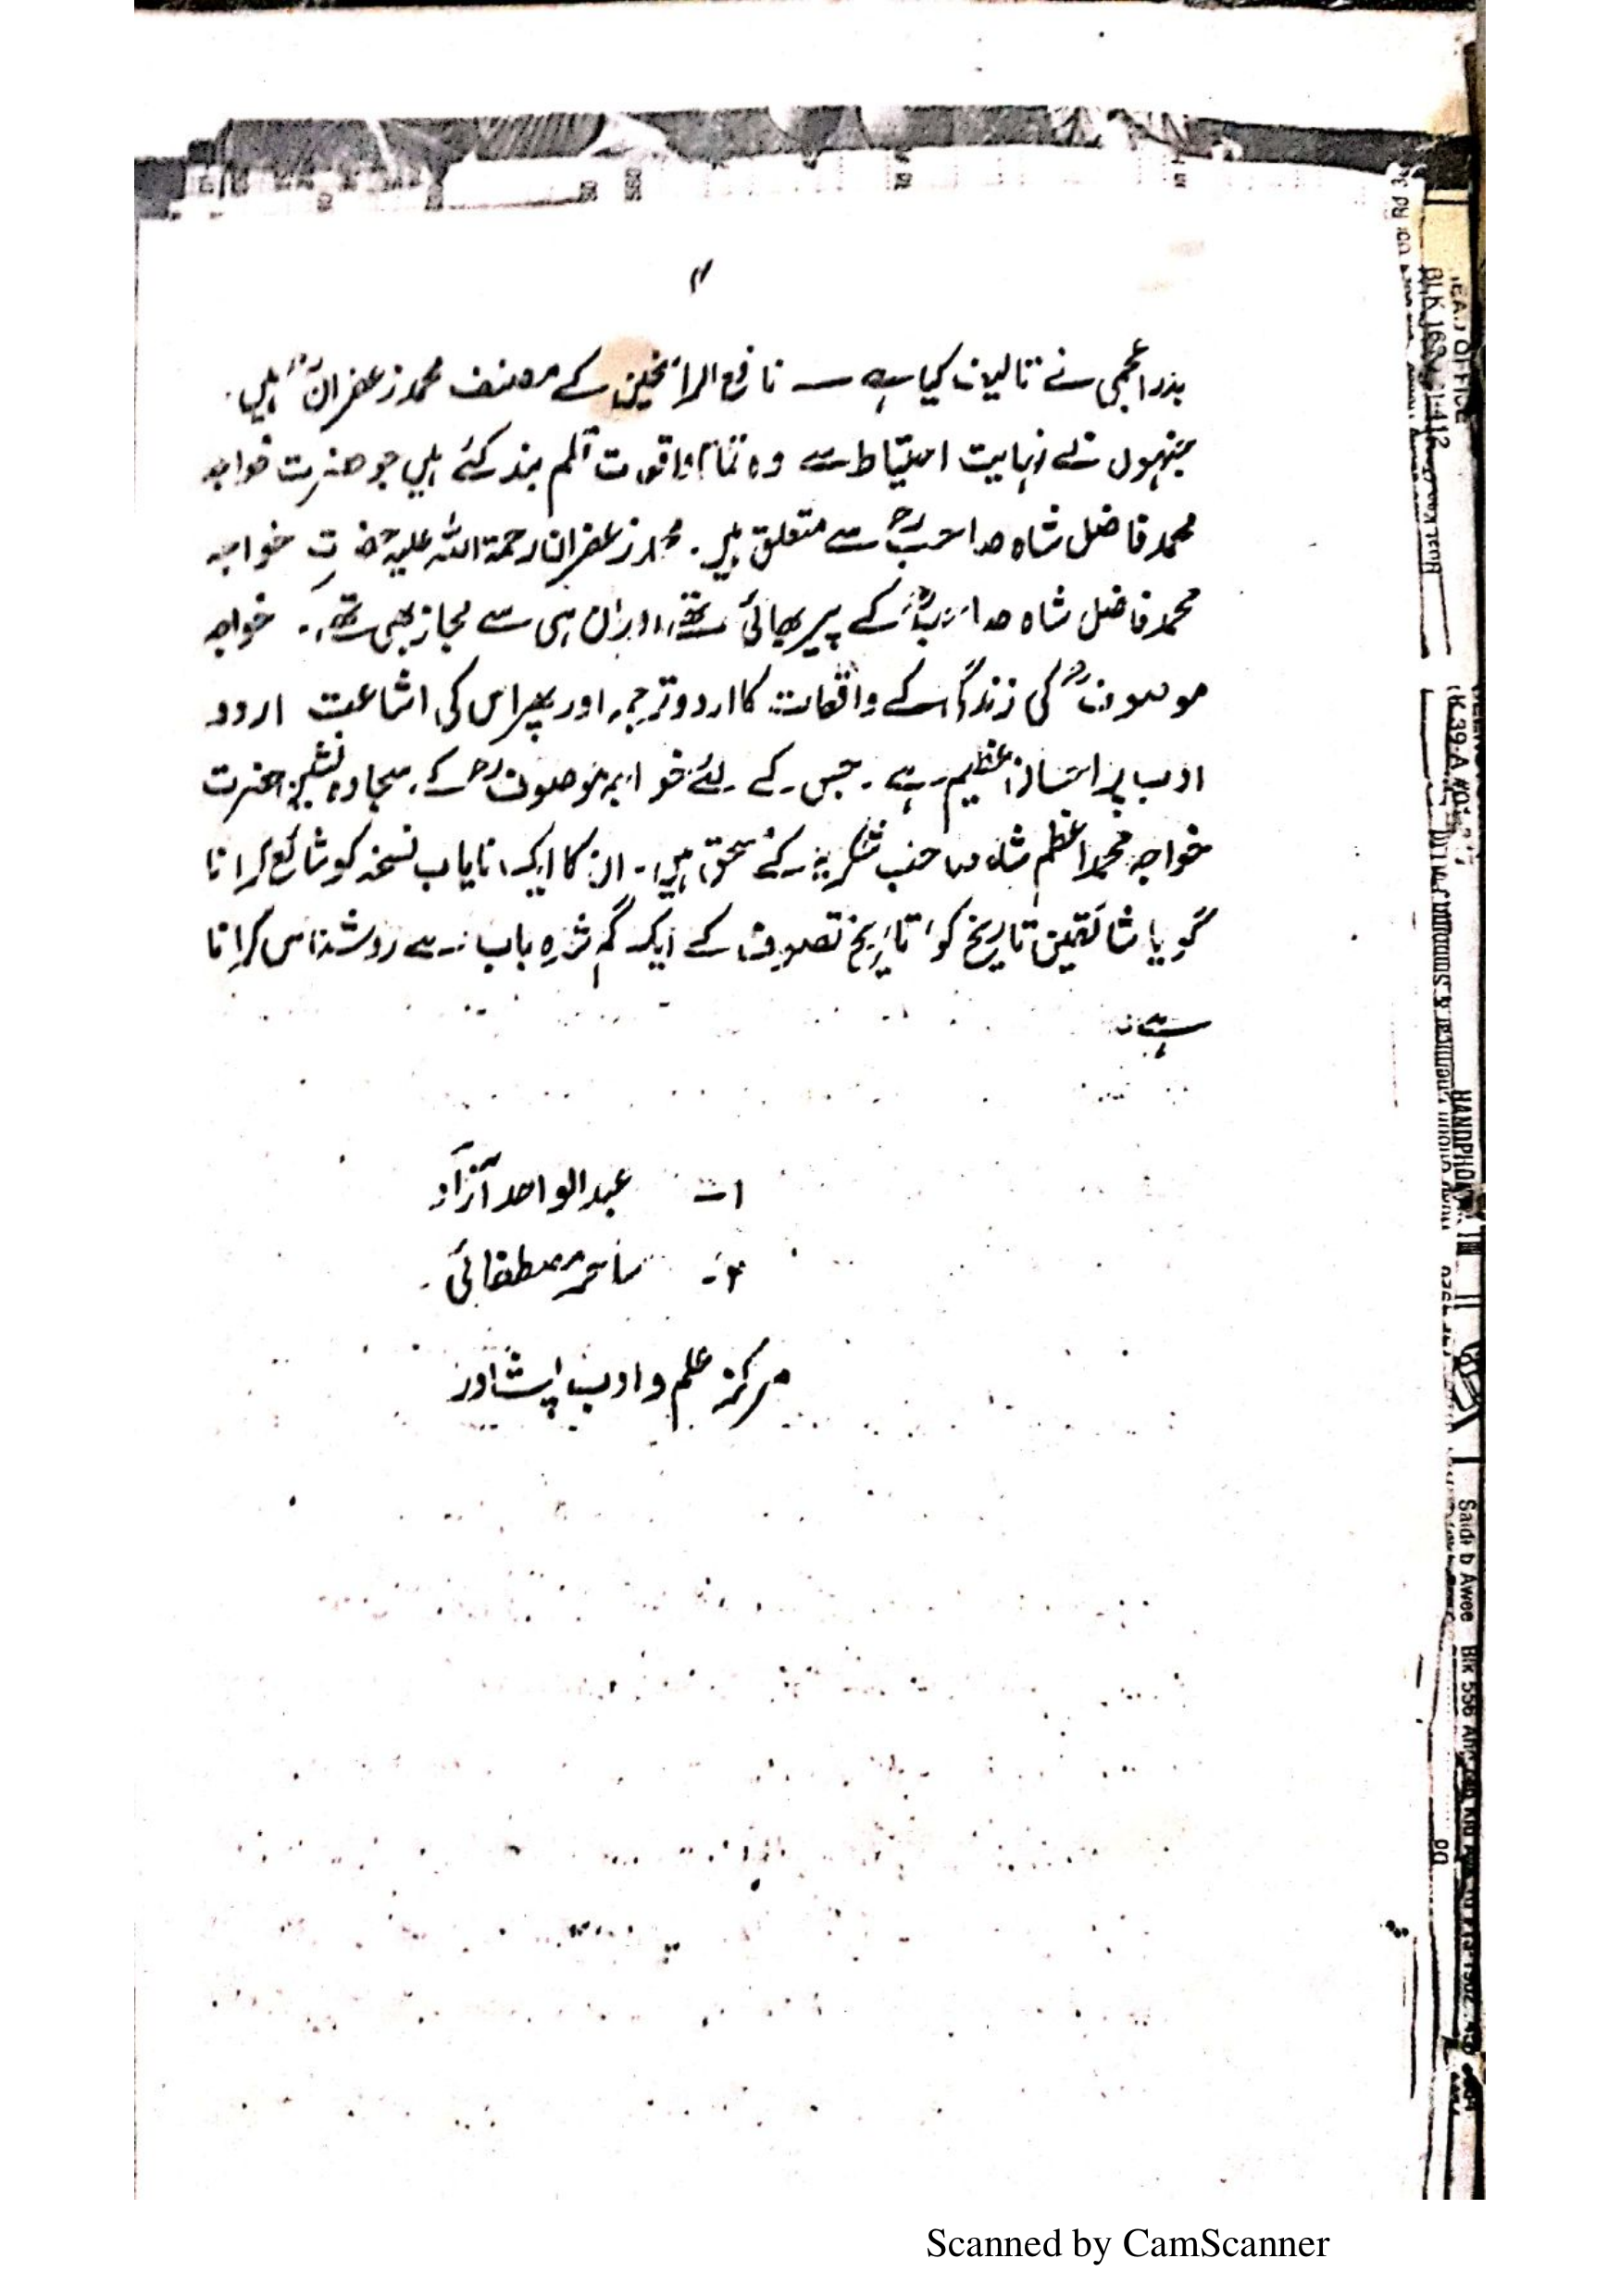 ۱۱
بدر اعجمی نے تالیف کیا ہے — نافع الرائخین کے مصنف محمد زعفرانؒ ہیں۔
جنہوں نے نہایت احتیاط سے وہ تمام واقعات قلم بند کئے ہیں جو حضرت خواجہ
محمد فاضل شاہ صاحبؒ سے متعلق ہیں۔ محمد زعفران رحمۃ اللہ علیہ حضرت خواجہ
محمد فاضل شاہ صاحبؒ کے پیر بھائی تھے، اور ان ہی سے مجاز بھی تھے۔ خواجہ
موصوفؒ کی زندگی کے واقعات کا اردو ترجمہ اور پھر اس کی اشاعت اردو
ادب پر احسان عظیم ہے۔ جس کے لئے خواجہ موصوفؒ کے سجادہ نشین حضرت
خواجہ محمد اعظم شاہ صاحب شکریہ کے مستحق ہیں۔ ان کا ایک نایاب نسخہ کو شائع کرانا
گویا شائقین تاریخ کو تاریخ تصوف کے ایک گم شدہ باب سے روشناس کرانا
ہے۔
۱۔ عبدالواحد آزاد
۲۔ ساحر مصطفائی۔
مرکز علم و ادب پشاور
HEAD OFFICE
HANDPHONE
Saidi b Awee Blk 556
Scanned by CamScanner